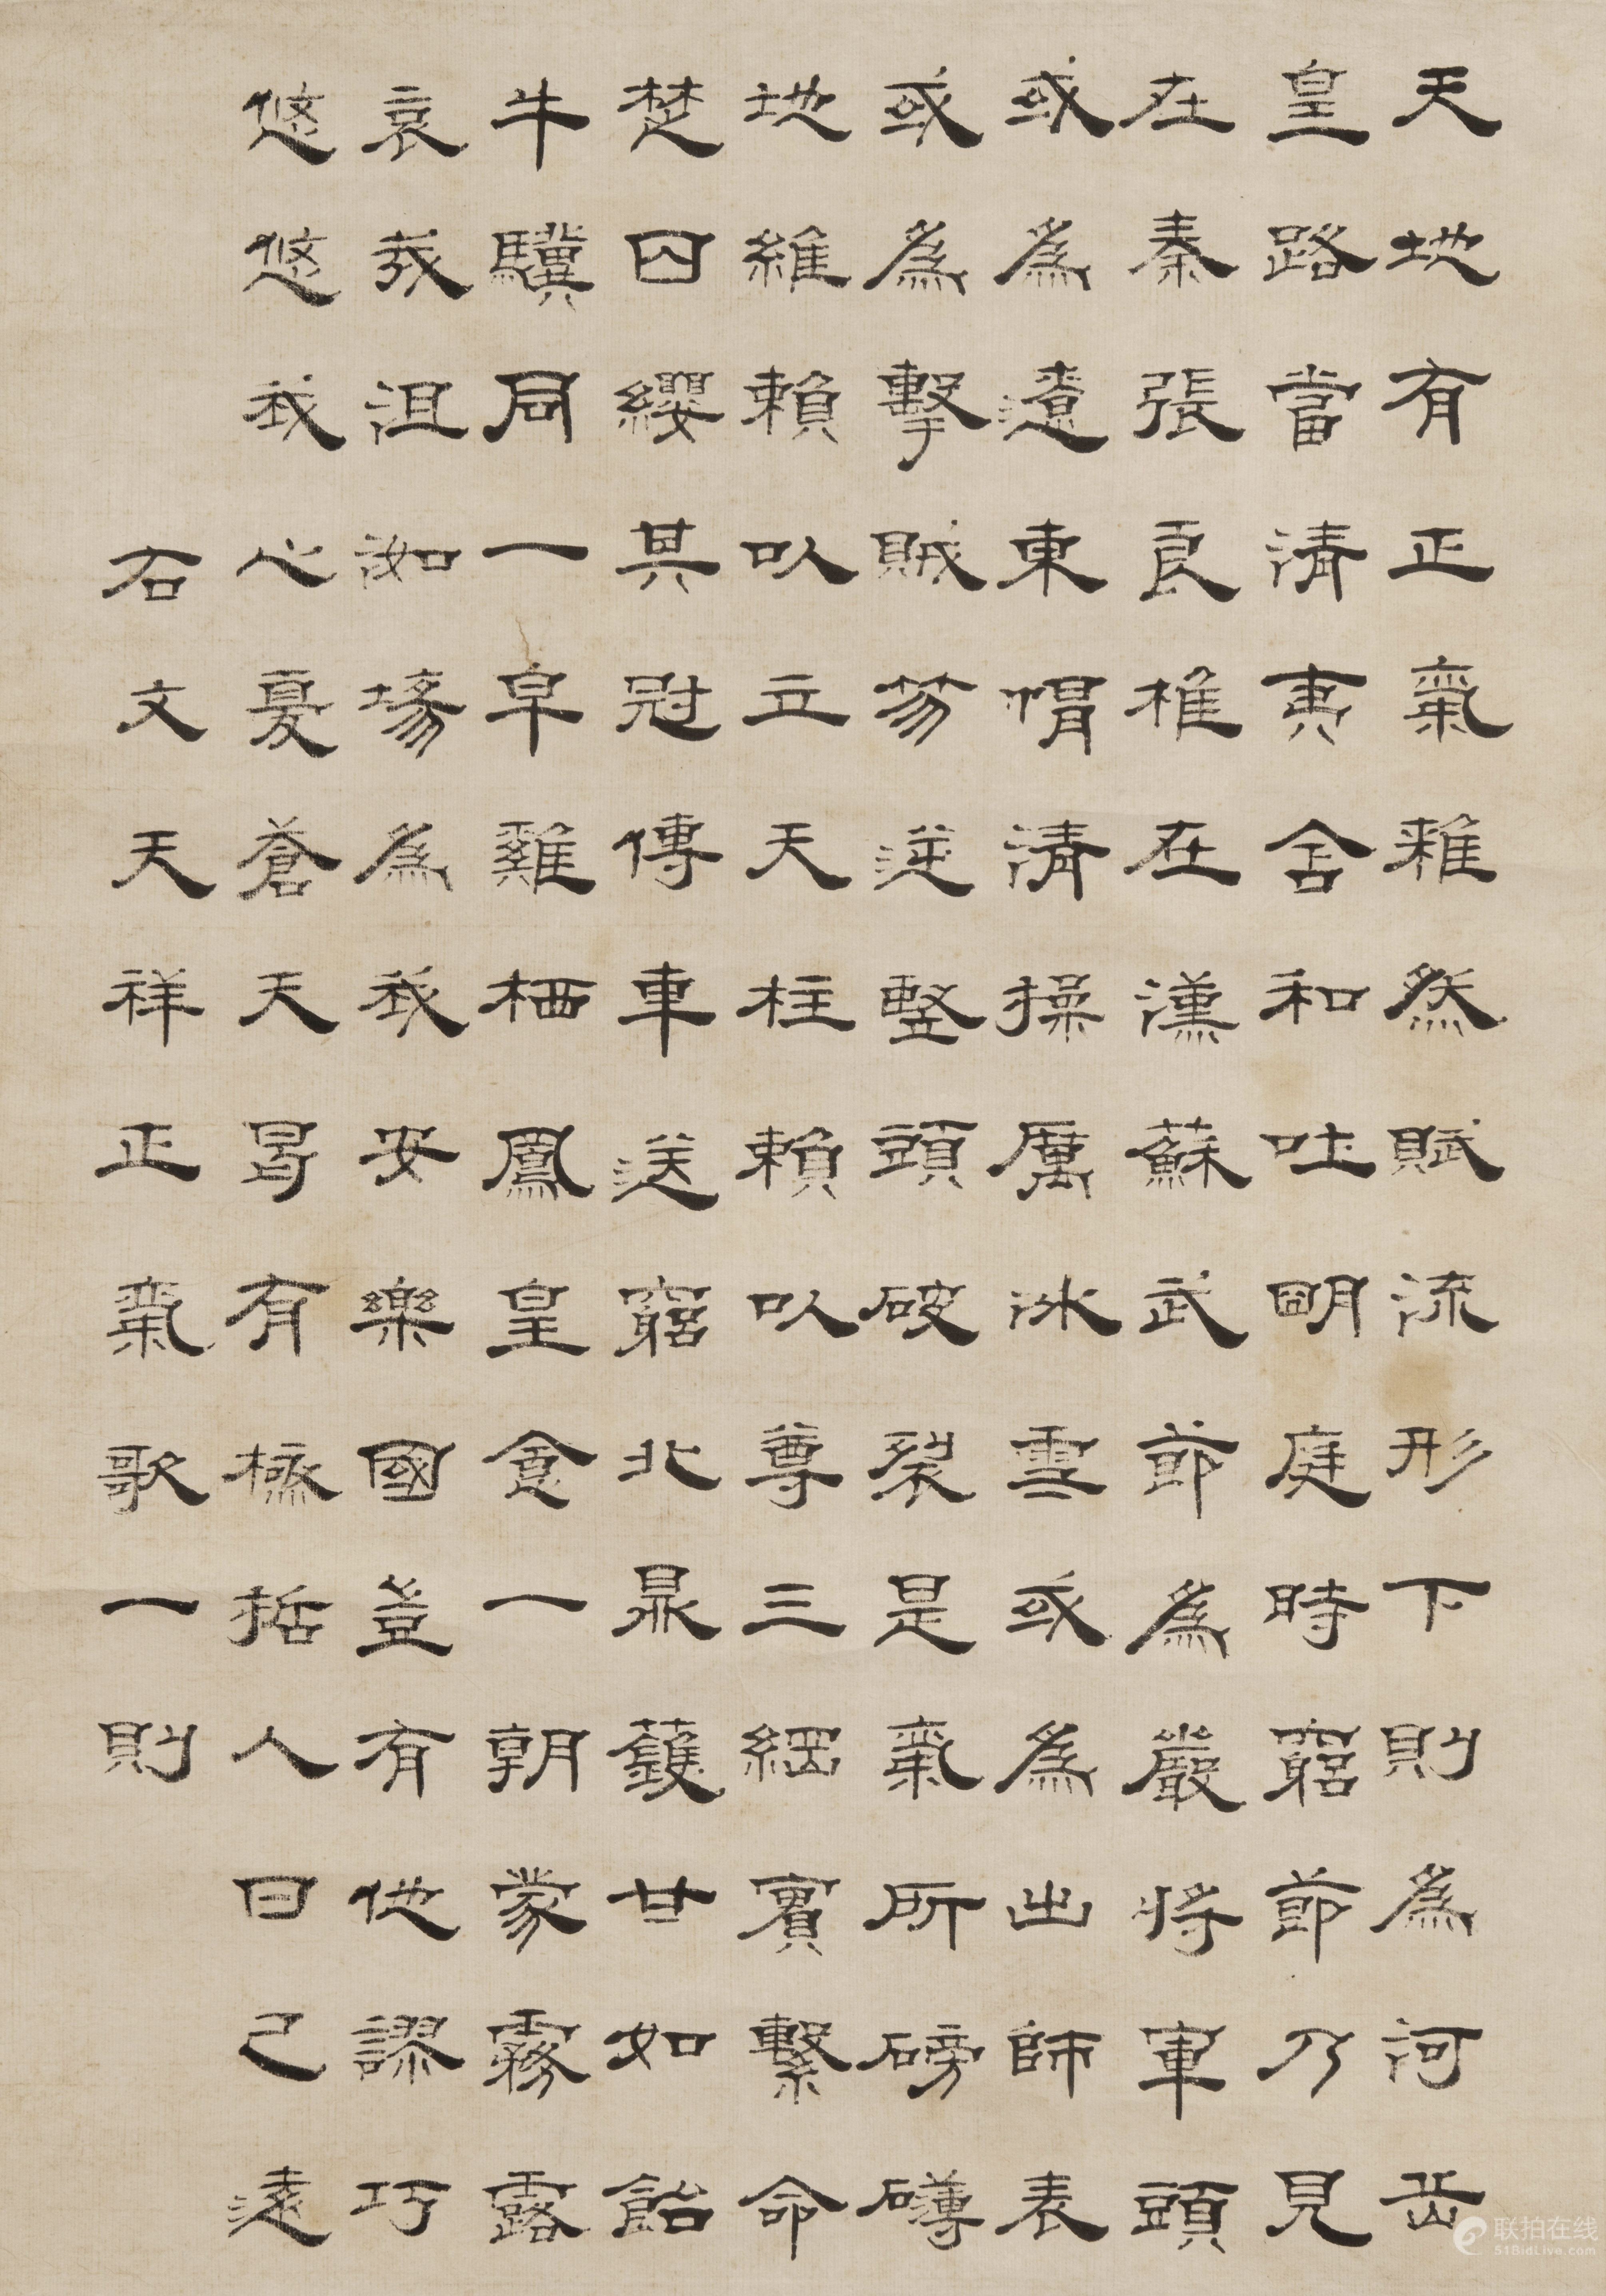 天地有正氣雜然賦流形下則為河岳
皇路當清夷含和吐明庭時窮節乃見
在秦張良椎在漢蘇武節為嚴將軍頭
或為遼東帽清操厲冰雪或為出師表
或為擊賊笏逆豎頭破裂是氣所磅礴
地維賴以立天柱賴以尊三綱實繫命
楚囚纓其冠傳車送窮北鼎鑊甘如飴
牛驥同一皁雞栖鳳皇食一朝蒙霧露
哀哉沮洳場為我安樂國豈有他謬巧
悠悠我心憂蒼天曷有極哲人日已遠
右文天祥正氣歌一則
联拍在线
51BidLive.com